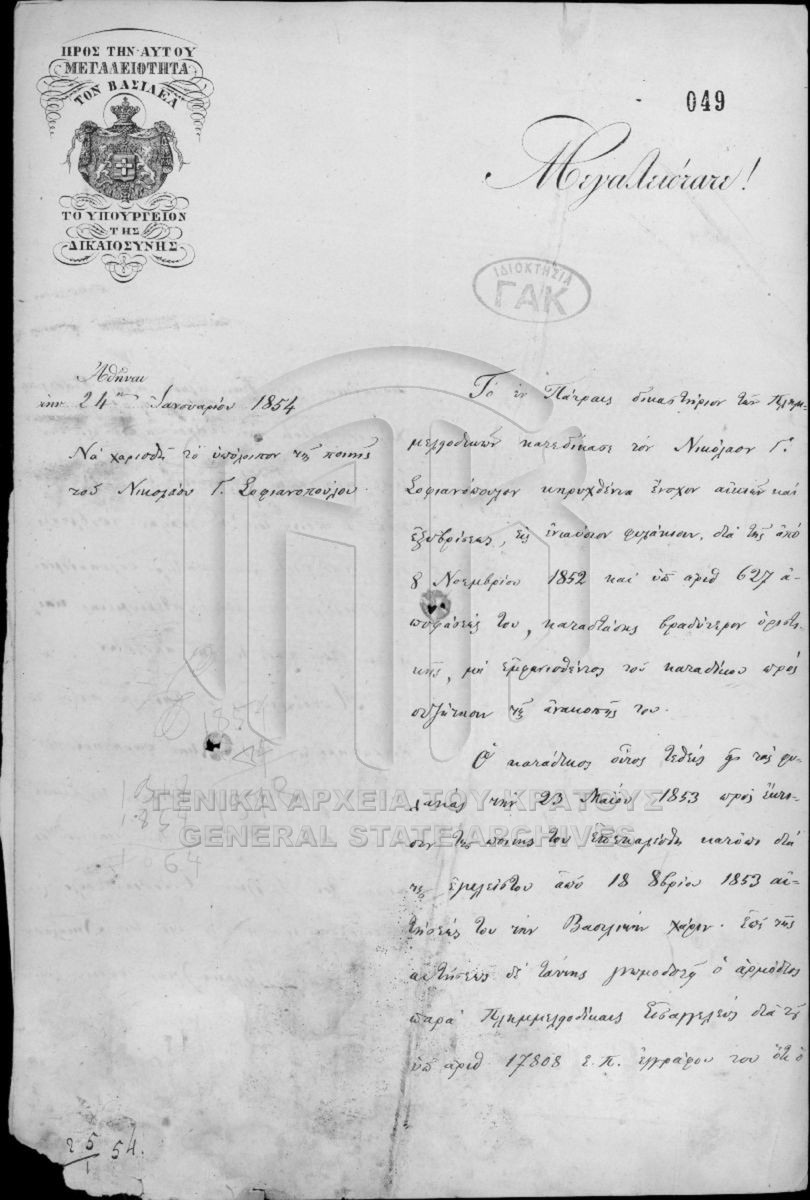 ΠΡΟΣ ΤΗΝ ΑΥΤΟΥ
ΜΕΓΑΛΕΙΟΤΗΤΑ
ΤΟΝ ΒΑΣΙΛΕΑ
ΤΟ ΥΠΟΥΡΓΕΙΟΝ
ΤΗΣ
ΔΙΚΑΙΟΣΥΝΗΣ
049
Μεγαλειότατε!
ΙΔΙΟΚΤΗΣΙΑ
ΓΑΚ
Ἀθῆναι
τὴν 24ην Ἰανουαρίου 1854
Νὰ χαρισθῇ τὸ ὑπόλοιπον τῆς ποινῆς
τοῦ Νικολάου Γ. Σοφιανοπούλου.
Τὸ ἐν Πάτραις δικαστήριον τῶν Πλημ-
μελειοδικῶν κατεδίκασε τὸν Νικόλαον Γ.
Σοφιανόπουλον κηρυχθέντα ἔνοχον αἰκιῶν καὶ
ἐξυβρίσεως, εἰς ἐνιαύσιον φυλάκισιν, διὰ τῆς ἀπὸ
8 Νοεμβρίου 1852 καὶ ὑπ ἀριθ 627 ἀ-
ποφάσεώς του, καταστάσης βραδύτερον ὁριστι-
κῆς, μὴ ἐμφανισθέντος τοῦ καταδίκου πρὸς
συζήτησιν τῆς ἀνακοπῆς του.
Ὁ κατάδικος οὗτος τεθεὶς εἰς τὰς φυ-
λακὰς τὴν 23 Μαΐου 1853 πρὸς ἔκτι-
σιν τῆς ποινῆς του ἐπεκαλέσθη κατόπιν διὰ
τῆς ἀπὸ 18 8βρίου 1853 αἰ-
τήσεώς του τὴν Βασιλικὴν χάριν. Ἐπὶ τῆς
αἰτήσεως δὲ ταύτης γνωμοδοτῇ ὁ ἁρμόδιος
παρὰ Πλημμελειοδίκαις Εἰσαγγελεὺς διὰ τοῦ
ὑπ ἀριθ 17808 Ε.Π. ἐγγράφου του ὅτι ὁ
ΓΕΝΙΚΑ ΑΡΧΕΙΑ ΤΟΥ ΚΡΑΤΟΥΣ
GENERAL STATE ARCHIVES
1854
25/1 54.